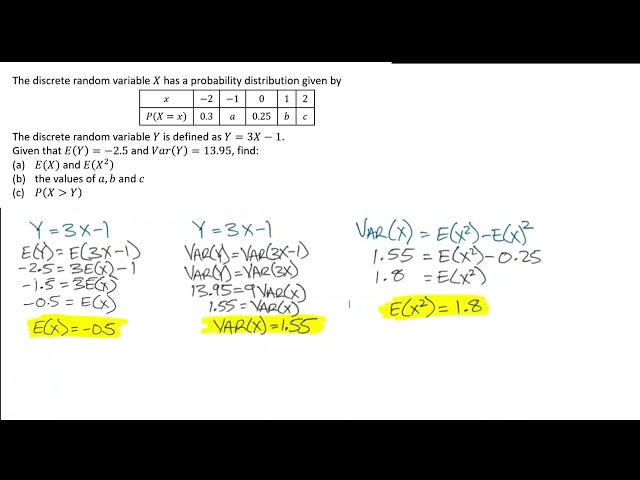 The discrete random variable X has a probability distribution given by
x −2 −1 0 1 2
P(X = x) 0.3 a 0.25 b c
The discrete random variable Y is defined as Y = 3X − 1.
Given that E(Y) = −2.5 and Var(Y) = 13.95, find:
(a) E(X) and E(X²)
(b) the values of a, b and c
(c) P(X > Y)
Y = 3X-1
E(Y) = E(3X-1)
-2.5 = 3E(X) -1
-1.5 = 3E(X)
-0.5 = E(X)
E(X) = -0.5
Y = 3X-1
VAR(Y) = VAR(3X-1)
VAR(Y) = VAR(3X)
13.95 = 9VAR(X)
1.55 = VAR(X)
VAR(X) = 1.55
VAR(X) = E(X²) - E(X)²
1.55 = E(X²) - 0.25
1.8 = E(X²)
E(X²) = 1.8